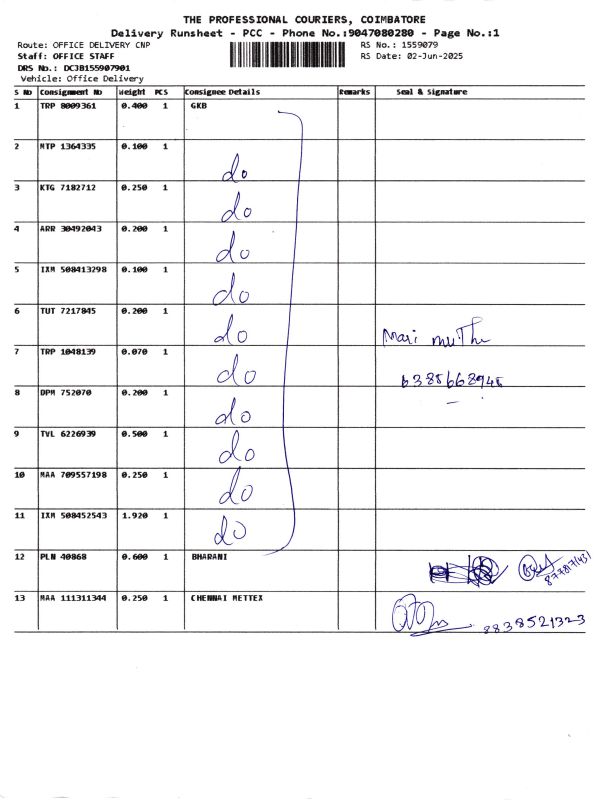 THE PROFESSIONAL COURIERS, COIMBATORE
Delivery Runsheet - PCC - Phone No.:9047080280 - Page No.:1
Route: OFFICE DELIVERY CNP RS No.: 1559079
Staff: OFFICE STAFF RS Date: 02-Jun-2025
DRS No.: DC3B155907901
Vehicle: Office Delivery
S No Consignment No Weight PCS Consignee Details Remarks Seal & Signature
1 TRP 8009361 0.400 1 GKB
2 MTP 1364335 0.100 1 do
3 KTG 7182712 0.250 1 do
4 ARR 30492043 0.200 1 do
5 IXM 508413298 0.100 1 do
6 TUT 7217845 0.200 1 do Mari muThu
7 TRP 1048139 0.070 1 do 6385668945
8 DPM 752070 0.200 1 do
9 TVL 6226939 0.500 1 do
10 MAA 709557198 0.250 1 do
11 IXM 508452543 1.920 1 do
12 PLN 40868 0.600 1 BHARANI
13 MAA 111311344 0.250 1 CHENNAI METTEX
8838521323